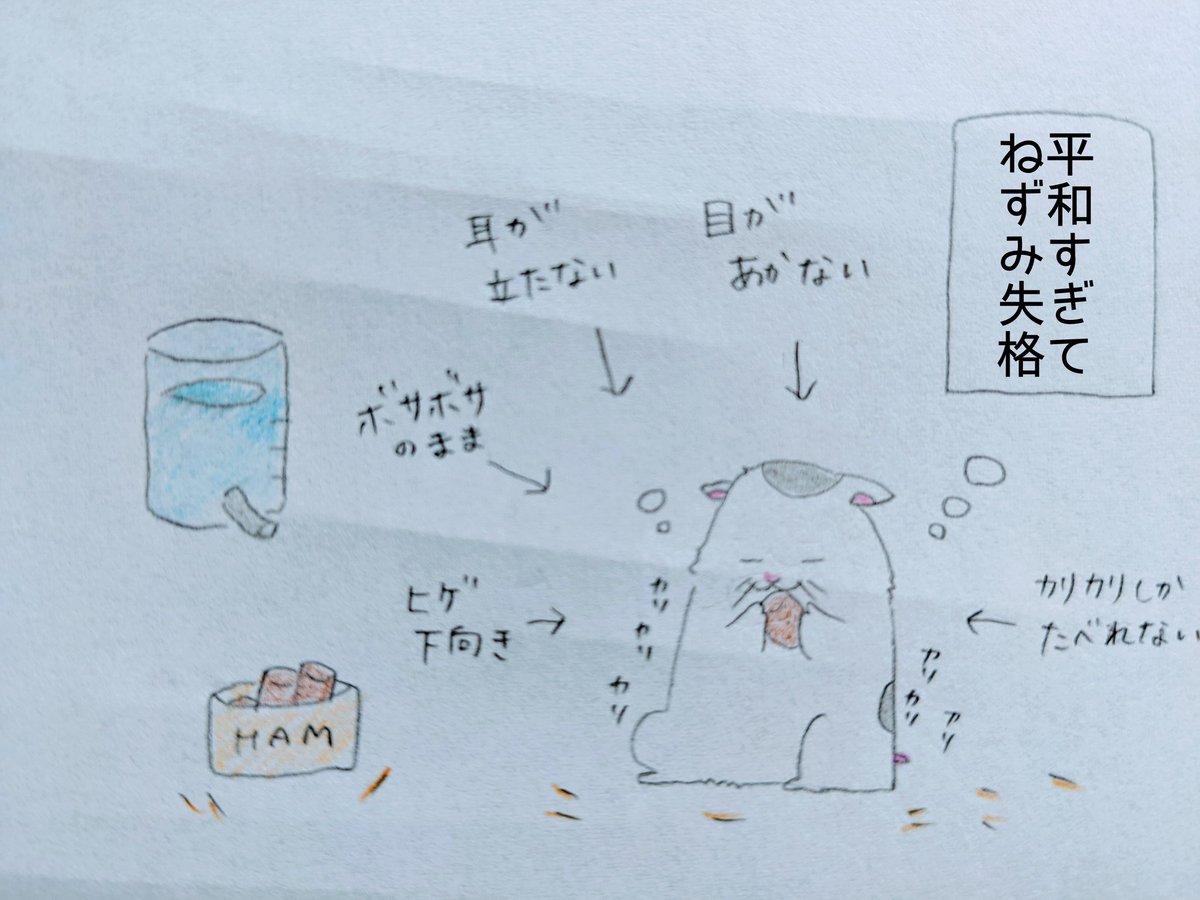 平和すぎて
ねずみ失格
目が
あかない
耳が
立たない
ボサボサ
のまま
ヒゲ
下向き
カリカリしか
たべれない
カリ
カリ
カリ
カリ
カリ
カリ
HAM